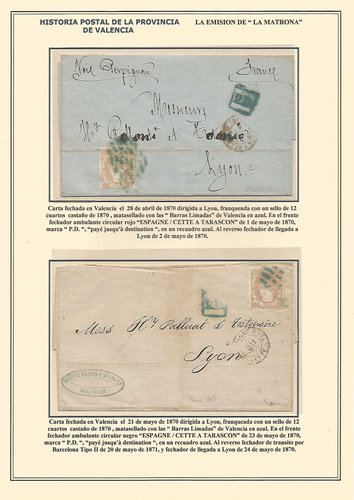 HISTORIA POSTAL DE LA PROVINCIA
DE VALENCIA
LA EMISION DE “ LA MATRONA”
Voie Perpignan
France
P.D.
Messieurs
Lyon
Carta fechada en Valencia el 28 de abril de 1870 dirigida a Lyon, franqueada con un sello de 12
cuartos castaño de 1870 , matasellado con las “ Barras Limadas” de Valencia en azul. En el frente
fechador ambulante circular rojo “ESPAGNE / CETTE A TARASCON” de 1 de mayo de 1870,
marca “ P.D. “, “payé jusqu'à destination “, en un recuadro azul. Al reverso fechador de llegada a
Lyon de 2 de mayo de 1870.
Mess
Lyon
VALENCIA
Carta fechada en Valencia el 21 de mayo de 1870 dirigida a Lyon, franqueada con un sello de 12
cuartos castaño de 1870 , matasellado con las “ Barras Limadas” de Valencia en azul. En el frente
fechador ambulante circular negro “ESPAGNE / CETTE A TARASCON” de 23 de mayo de 1870,
marca “ P.D. “, “payé jusqu'à destination “, en un recuadro azul. Al reverso fechador de transito por
Barcelona Tipo II de 20 de mayo de 1871, y fechador de llegada a Lyon de 24 de mayo de 1870.